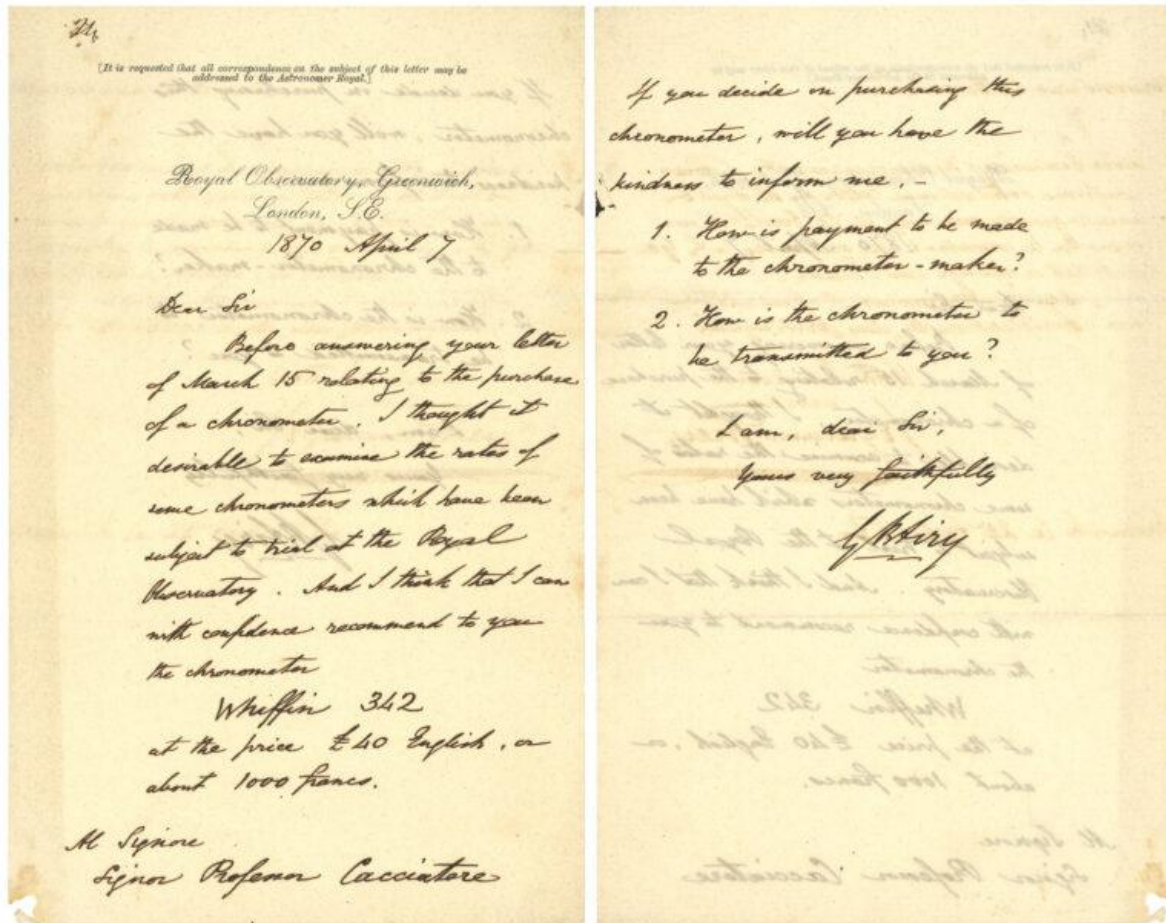 [It is requested that all correspondence on the subject of this letter may be
addressed to the Astronomer Royal.]
Royal Observatory, Greenwich,
London, S.E.
1870 April 7
Dear Sir
Before answering your letter
of March 15 relating to the purchase
of a chronometer, I thought it
desirable to examine the rates of
some chronometers which have been
subject to trial at the Royal
Observatory. And I think that I can
with confidence recommend to you
the chronometer
Whiffin 342
at the price £40 English, or
about 1000 francs.
Al Signore
Signor Professor Cacciatore
If you decide on purchasing this
chronometer, will you have the
kindness to inform me, -
1. How is payment to be made
to the chronometer-maker?
2. How is the chronometer to
be transmitted to you?
I am, dear Sir,
Yours very faithfully
G B Airy